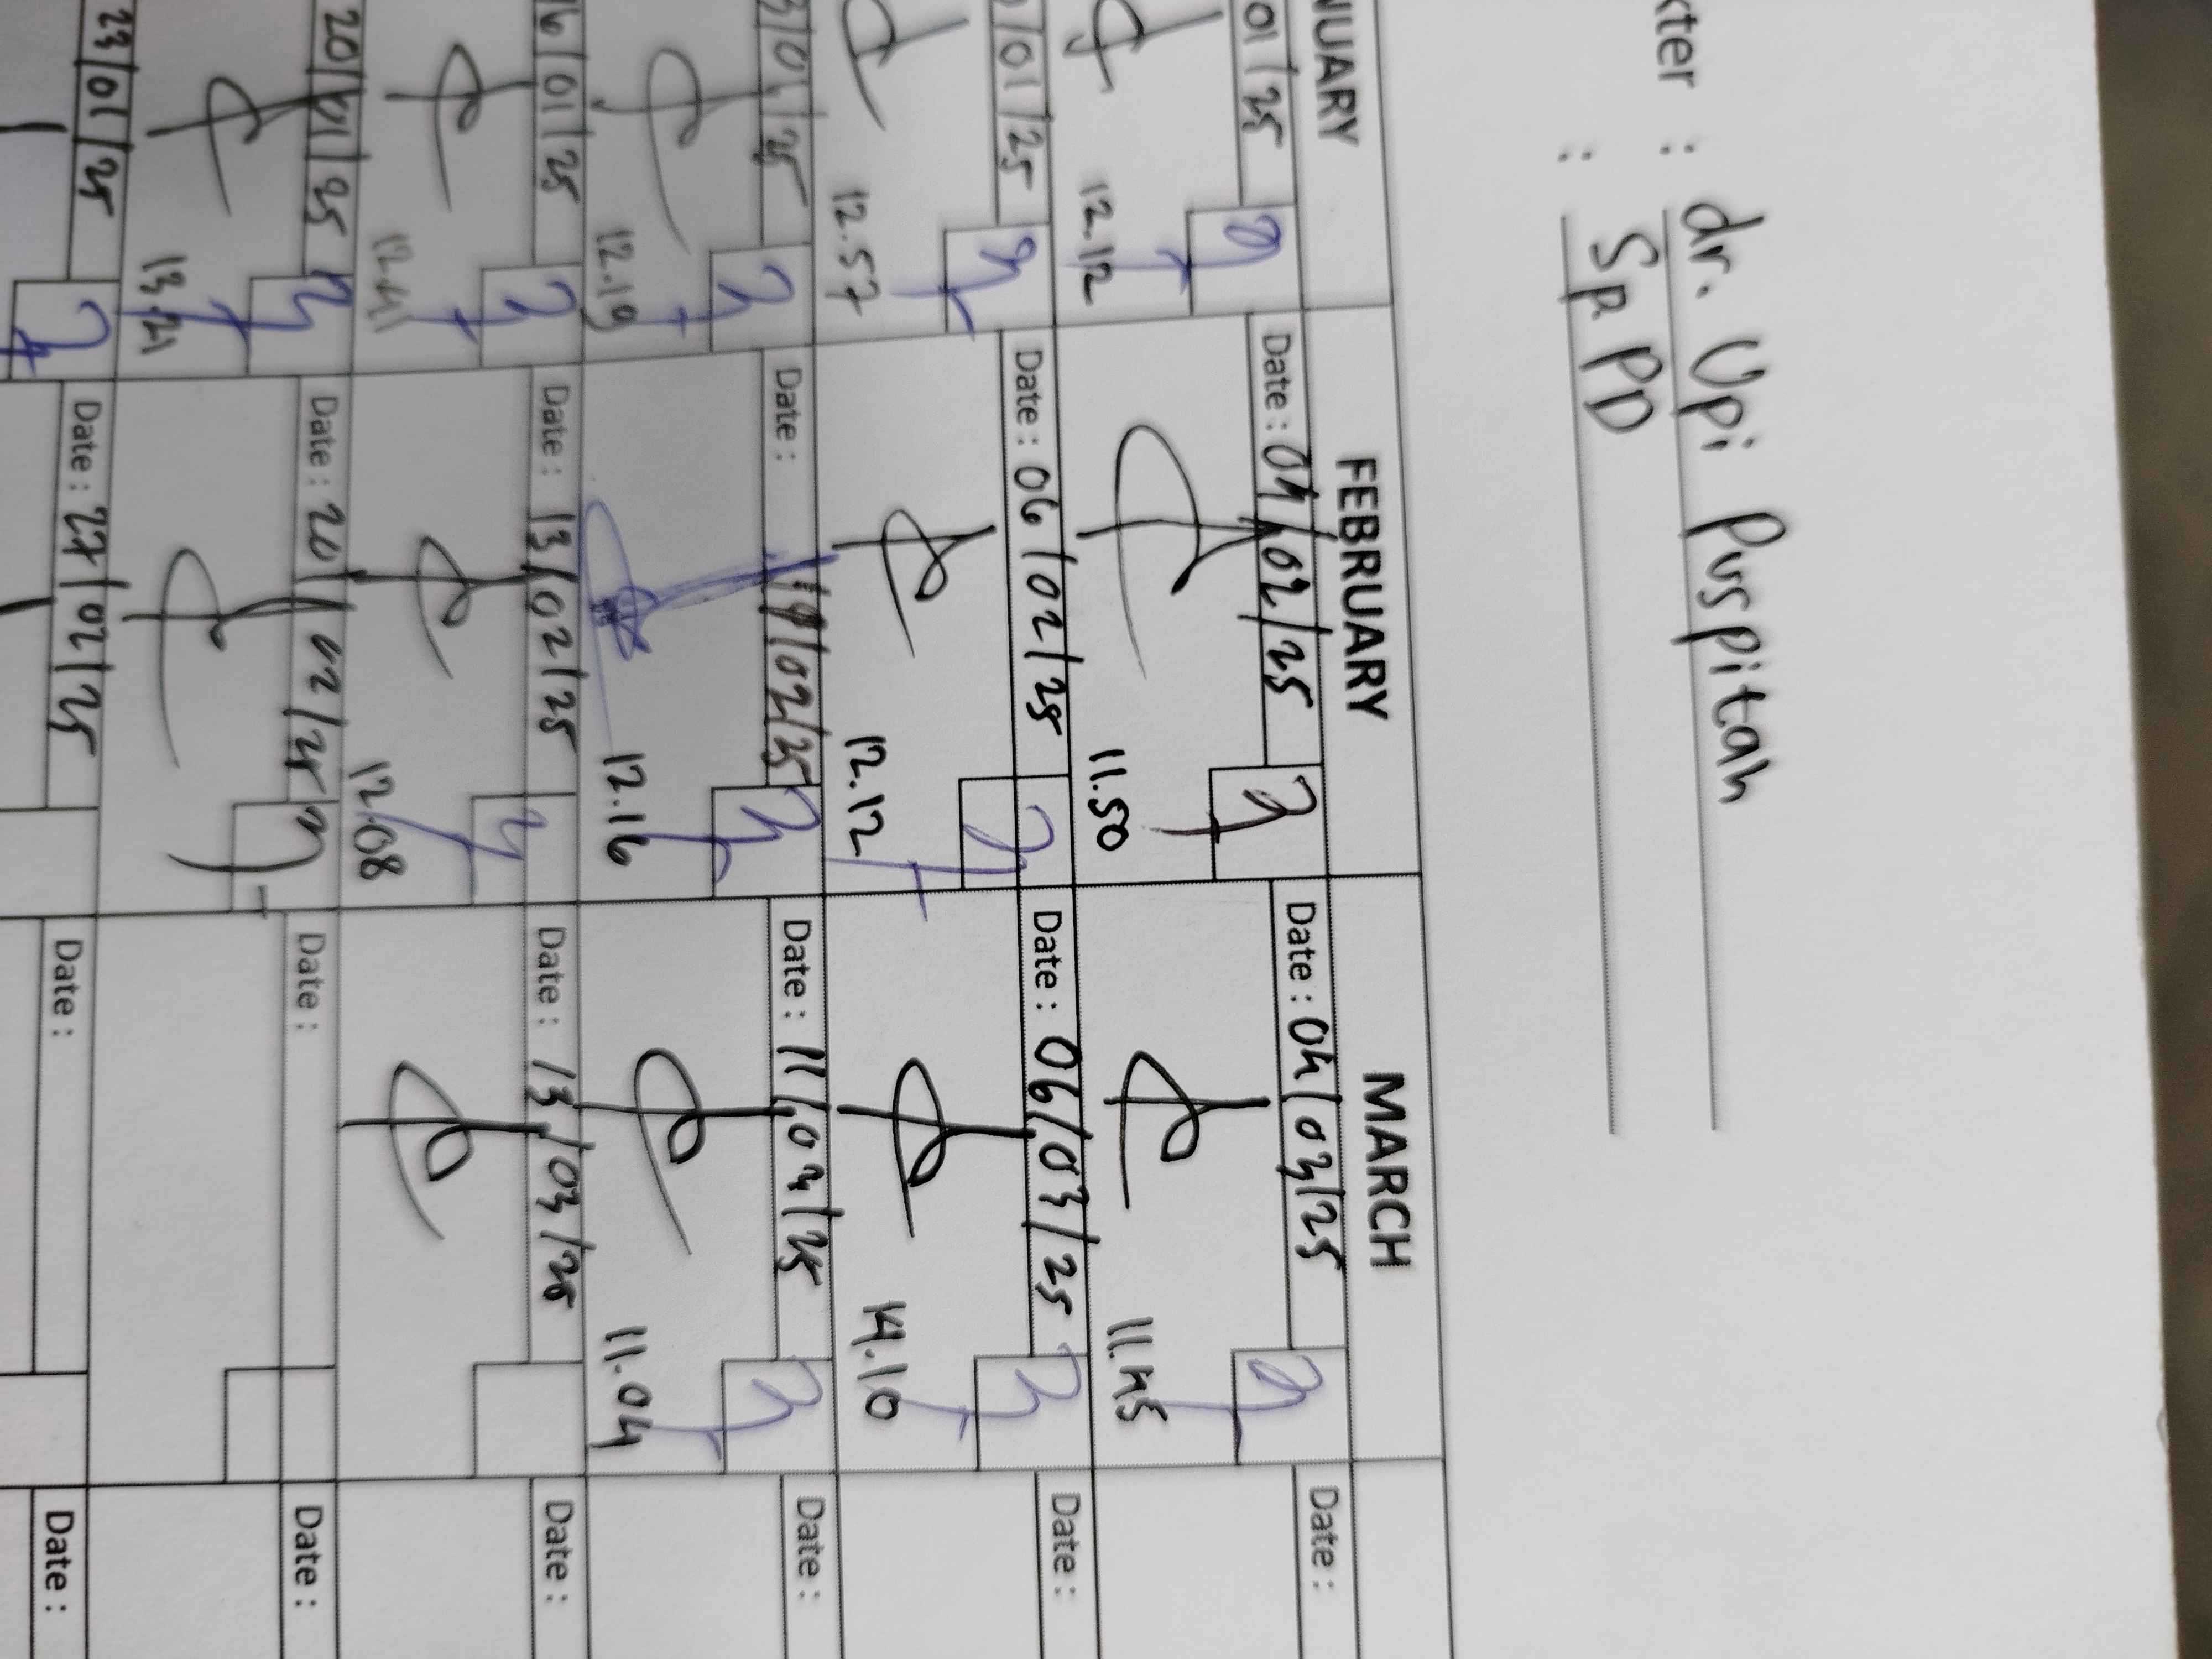 : dr. Upi Puspitah
: Sp PD
FEBRUARY MARCH
Date : 04/02/25 Date : 04/03/25 Date :
12.12 11.50 11.45
01/25 Date : 06/02/25 Date : 06/03/25 Date :
12.57 12.12 14.10
Date : 11/02/25 Date : 11/03/25 Date :
12.19 12.16 11.04
16/01/25 Date : 13/02/25 Date : 13/03/25 Date :
12.41 12.08
Date : 20/02/25 Date : Date :
13.21
23/01/25 Date : 27/02/25 Date : Date :